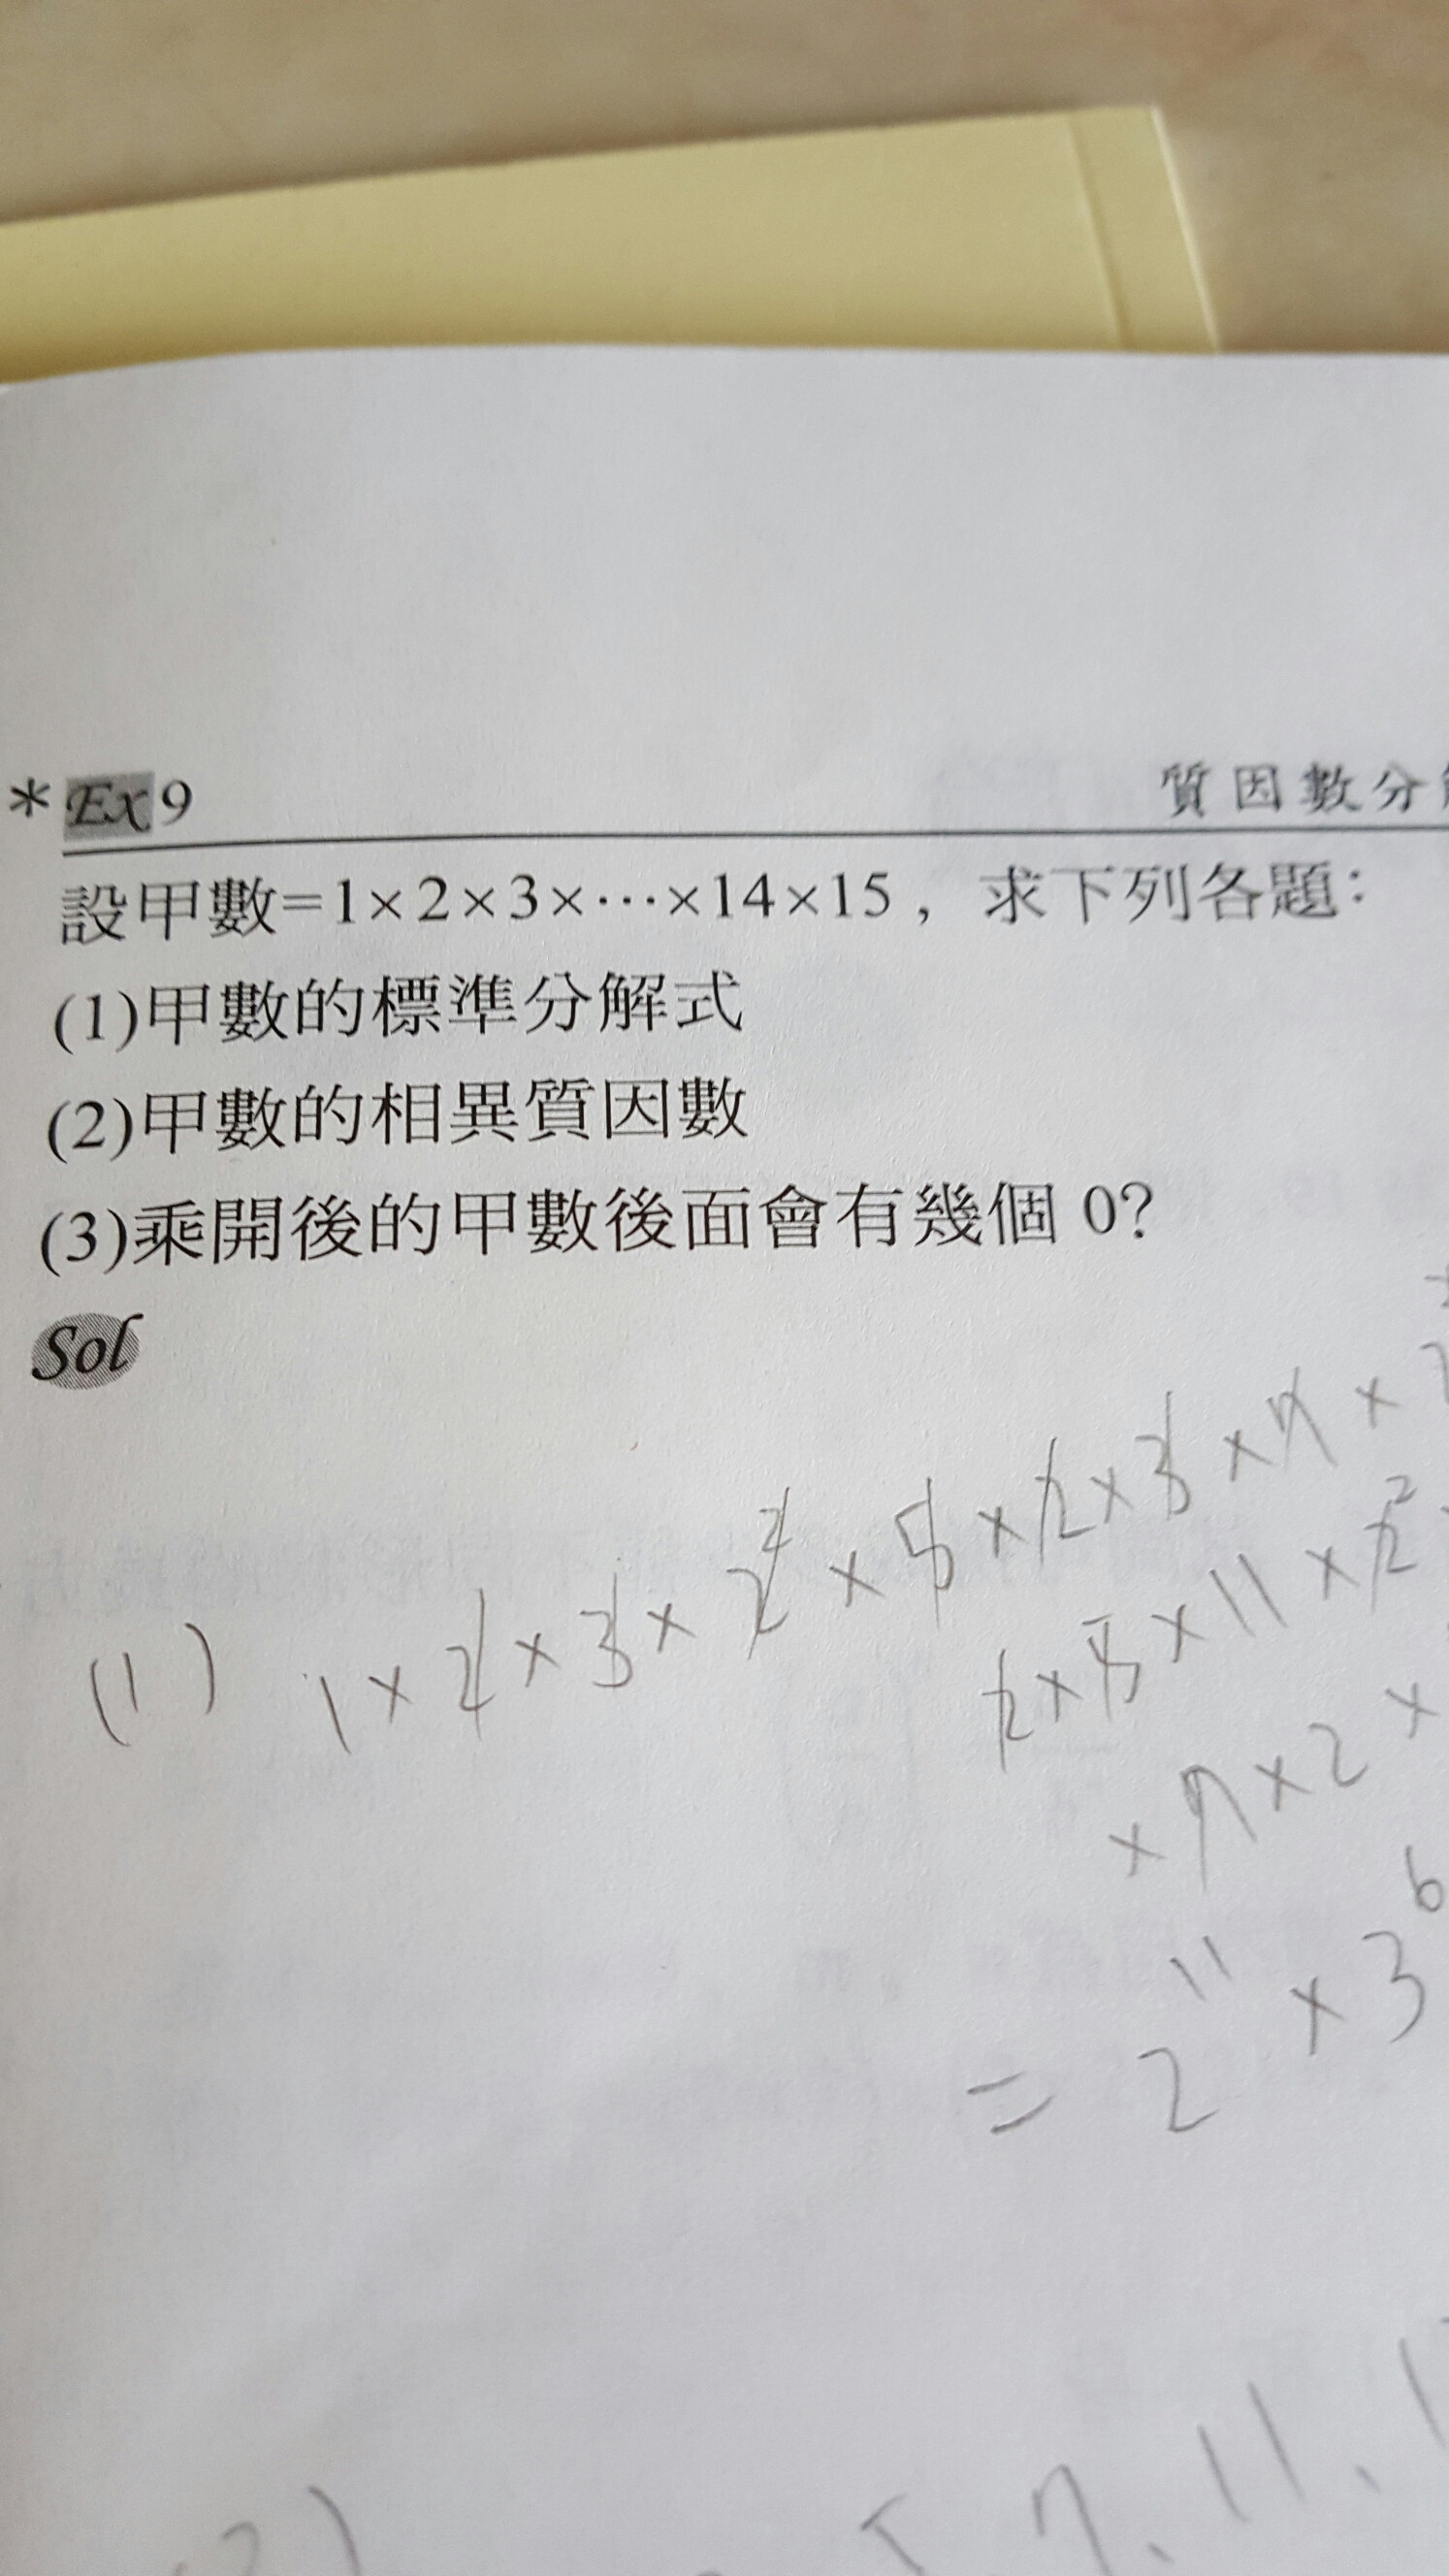 * Ex 9 質因數分
設甲數=1×2×3×⋯×14×15，求下列各題：
(1)甲數的標準分解式
(2)甲數的相異質因數
(3)乘開後的甲數後面會有幾個 0？
Sol
(1) 1×2×3×2²×5×2×3×7×
2×5×11×2²
×7×2×
=2¹¹×3⁶
7、11、